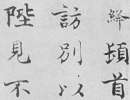 頓首
訪別以
陛見不